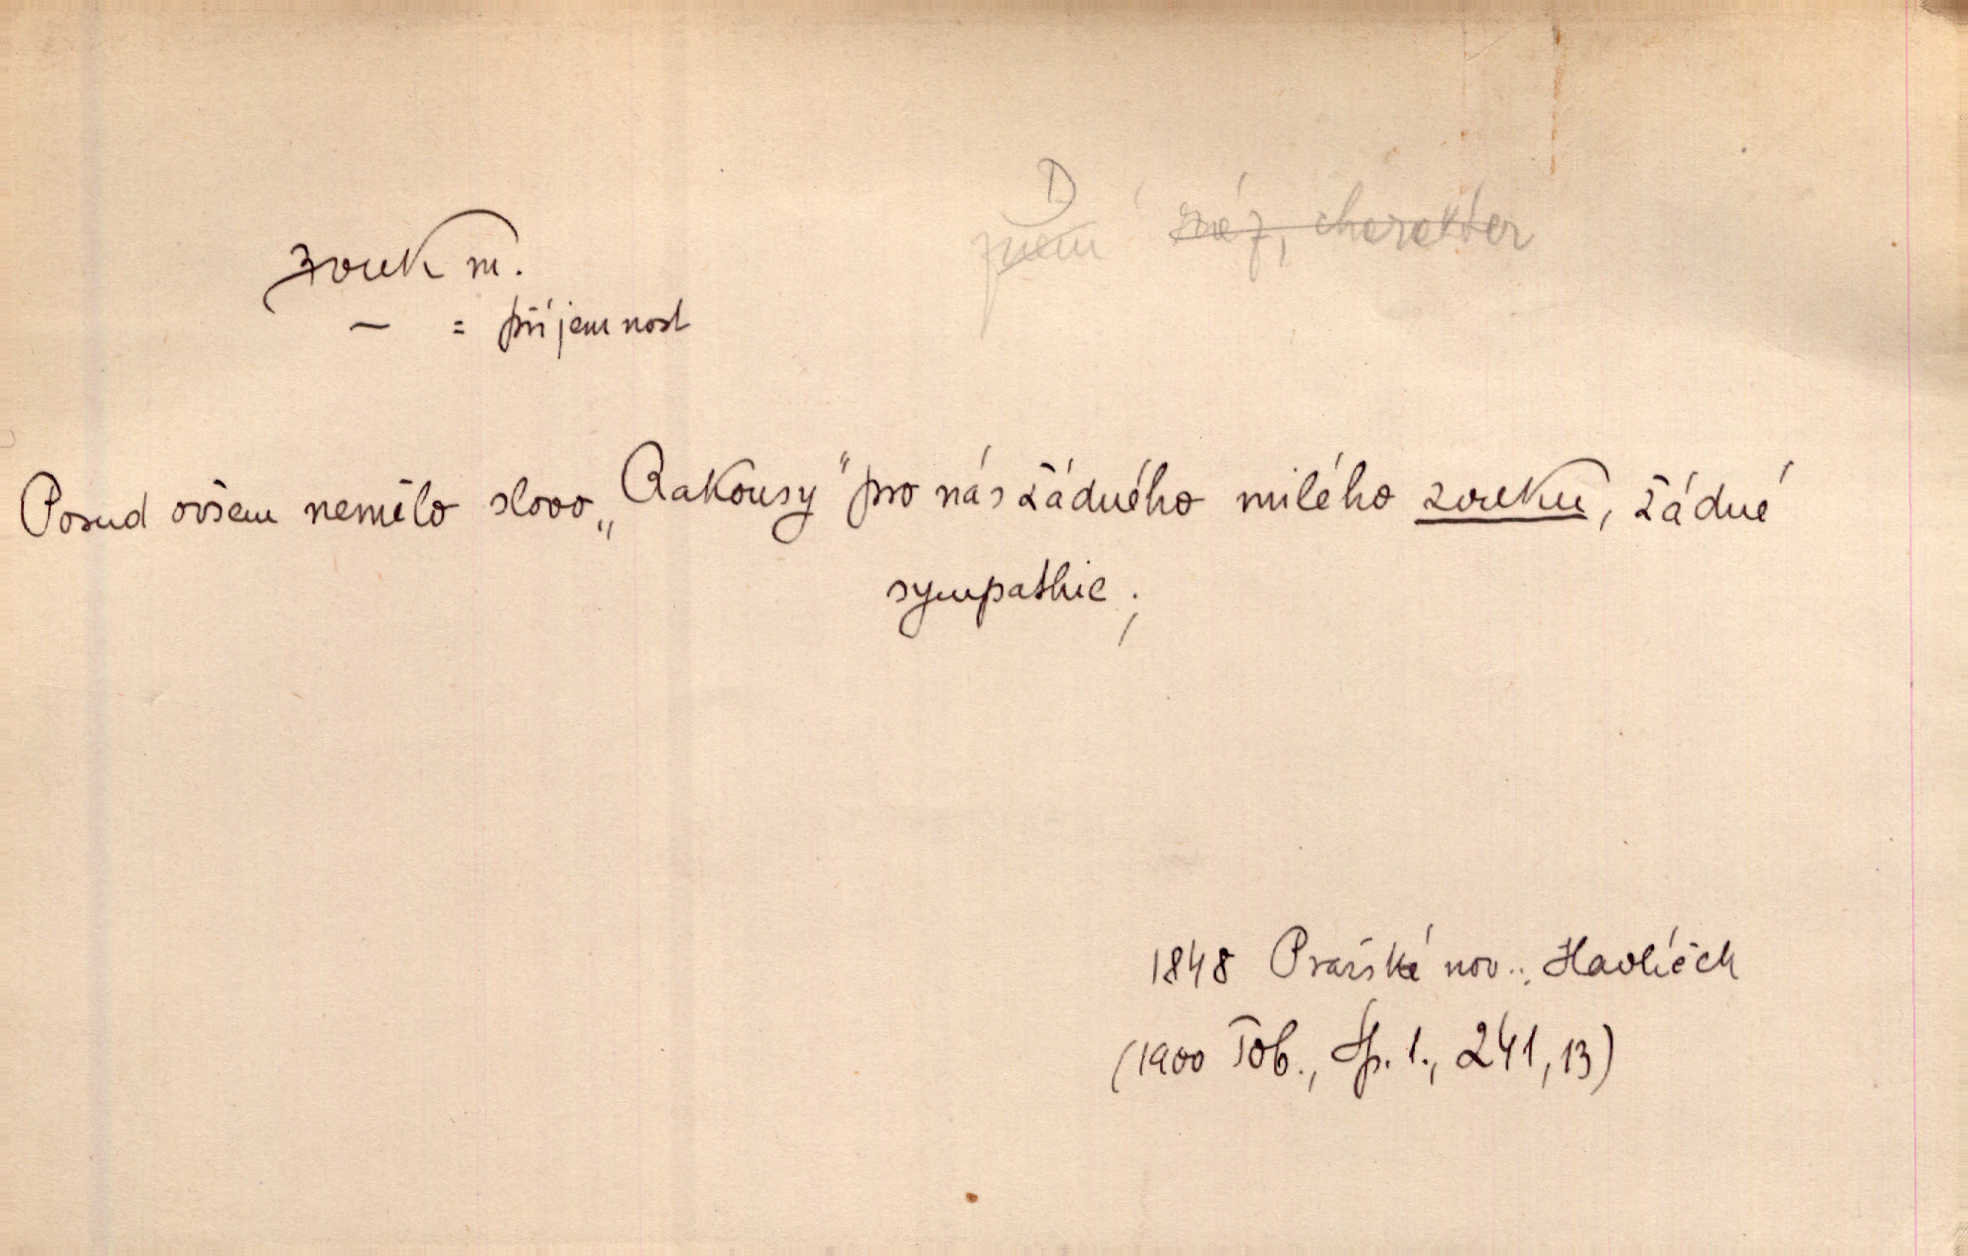 zvuk m.
D
ráz, charakter
— = příjemnost
Posud ovšem nemělo slovo „Rakousy“ pro nás žádného milého zvuku, žádné
sympathie;
1848 Pražské nov.. Havlíček
(1900 Tob., Sp. 1., 241, 13)